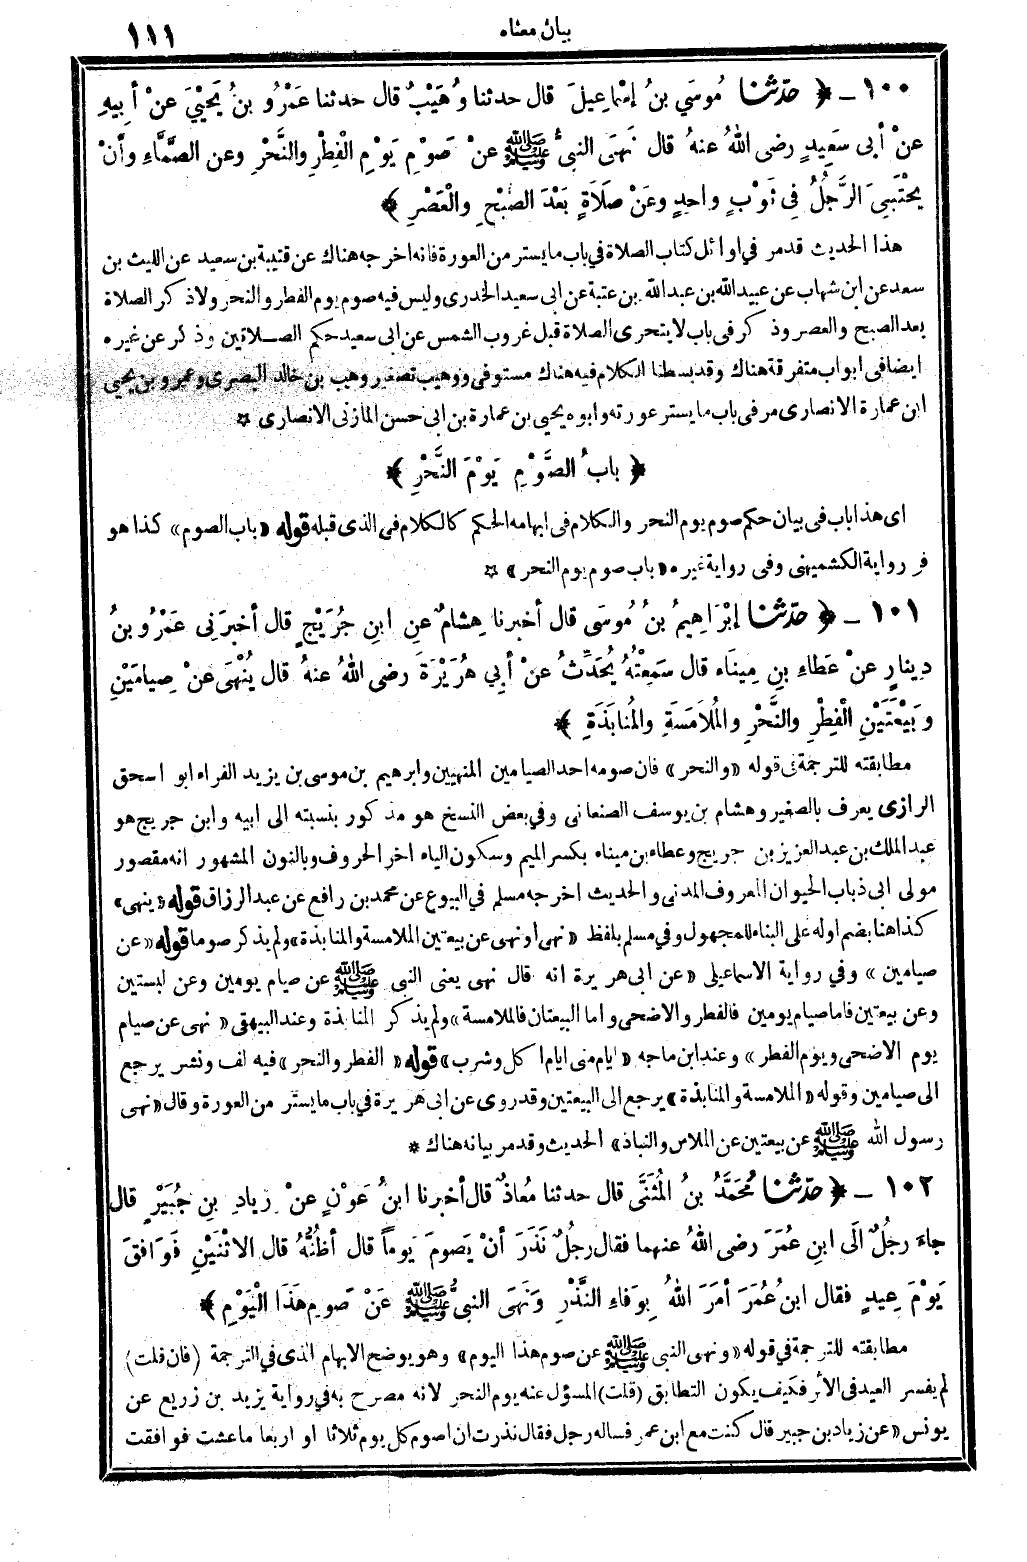 بيان معناه ١١١
١٠٠ - ﴿ حدّثنا مُوسَي بنُ إسْماعِيلَ قال حدثنا وُهَيْبٌ قال حدثنا عَمْرُو بنُ يَحْيَي عنْ أبِيهِ
عنْ أبى سَعِيدٍ رضى اللهُ عنهُ قال نَهَى النبىُّ ﷺ عنْ صَوْمِ يَوْمِ الْفِطْرِ والنَّحْرِ وعنِ الصَّمَّاءِ وأنْ
يَحْتَبِىَ الرَّجُلُ فِي ثَوْبٍ واحِدٍ وعَنْ صَلَاةٍ بَعْدَ الصُّبْحِ والْعَصْرِ ﴾
هذا الحديث قد مر في اوائل كتاب الصلاة في باب ما يستر من العورة فانه اخرجه هناك عن قتيبة بن سعيد عن الليث بن
سعد عن ابن شهاب عن عبيد الله بن عبد الله بن عتبة عن ابى سعيد الخدرى وليس فيه صوم يوم الفطر والنحر ولا ذكر الصلاة
بعد الصبح والعصر وذكر فى باب لا يتحرى الصلاة قبل غروب الشمس عن ابى سعيد حكم الصلاتين وذكر عن غيره
ايضا فى ابواب متفرقة هناك وقد بسطنا الكلام فيه هناك مستوفى ووهيب تصغير وهب بن خالد البصرى وعمرو بن يحيى
ابن عمارة الانصارى مر فى باب ما يستر عورته وابوه يحيى بن عمارة بن ابى حسن المازنى الانصارى ☆
﴿ بابُ الصَّوْمِ يَوْمَ النَّحْرِ ﴾
اى هذا باب فى بيان حكم صوم يوم النحر والكلام فى ابهامه الحكم كالكلام فى الذى قبله قوله «باب الصوم» كذا هو
فى رواية الكشميهنى وفى رواية غيره «باب صوم يوم النحر» ☆
١٠١ - ﴿ حدّثنا إبْرَاهِيمُ بنُ مُوسَى قال أخبرنا هِشامٌ عنِ ابنِ جُرَيْجٍ قال أخبرَنِى عَمْرُو بنُ
دِينارٍ عنْ عَطاءِ بنِ مِيناءَ قال سَمِعْتُهُ يُحَدِّثُ عنْ أبِي هُرَيْرَةَ رضى اللهُ عنهُ قال يُنْهَى عنْ صِيامَيْنِ
وبَيْعَتَيْنِ الْفِطْرِ والنَّحْرِ والمُلَامَسَةِ والمُنابَذَةِ ﴾
مطابقته للترجمة فى قوله «والنحر» فان صومه احد الصيامين المنهيين وابرهيم بن موسى بن يزيد الفراء ابو اسحق
الرازى يعرف بالصغير وهشام بن يوسف الصنعانى وفي بعض النسخ هو مذكور بنسبته الى ابيه وابن جريج هو
عبد الملك بن عبد العزيز بن جريج وعطاء بن ميناء بكسر الميم وسكون الياء اخر الحروف وبالنون المشهور انه مقصور
مولى ابى ذباب الحيوان المعروف المدنى والحديث اخرجه مسلم في البيوع عن محمد بن رافع عن عبد الرزاق قوله «ينهى»
كذا هنا بضم اوله على البناء للمجهول وفي مسلم بلفظ «نهى او نهى عن بيعتين الملامسة والمنابذة» ولم يذكر صوما قوله «عن
صيامين» وفي رواية الاسماعيلى «عن ابى هريرة انه قال نهى يعنى النبى ﷺ عن صيام يومين وعن لبستين
وعن بيعتين فاما صيام يومين فالفطر والاضحى واما البيعتان فالملامسة» ولم يذكر المنابذة وعند البيهقى «نهى عن صيام
يوم الاضحى ويوم الفطر» وعند ابن ماجه «ايام منى ايام اكل وشرب» قوله «الفطر والنحر» فيه لف ونشر يرجع
الى صيامين وقوله «الملامسة والمنابذة» يرجع الى البيعتين وقد روى عن ابى هريرة في باب ما يستر من العورة وقال «نهى
رسول الله ﷺ عن بيعتين عن الملاس والنباذ» الحديث وقد مر بيانه هناك *
١٠٢ - ﴿ حدّثنا مُحَمَّدُ بنُ المُثَنَّى قال حدثنا مُعاذٌ قال أخبرنا ابنُ عَوْنٍ عنْ زِيادِ بنِ جُبَيْرٍ قال
جاءَ رجُلٌ الَى ابنِ عُمَرَ رضى اللهُ عنهما فقال رجُلٌ نَذَرَ أنْ يَصومَ يَوماً قال أظُنُّهُ قال الاثْنَيْنِ فَوَافَقَ
يَوْمَ عِيدٍ فقال ابنُ عُمَرَ أمَرَ اللهُ بِوَفاءِ النَّذْرِ ونَهَى النبىُّ ﷺ عَنْ صَومِ هذَا الْيَوْمِ ﴾
مطابقته للترجمة في قوله «ونهى النبى ﷺ عن صوم هذا اليوم» وهو يوضح الابهام الذى في الترجمة (فان قلت)
لم يفسر العيد فى الاثر فكيف يكون التطابق (قلت) المسؤل عنه يوم النحر لانه مصرح به في رواية يزيد بن زريع عن
يونس «عن زياد بن جبير قال كنت مع ابن عمر فساله رجل فقال نذرت ان اصوم كل يوم ثلاثا او اربعا ما عشت فوافقت